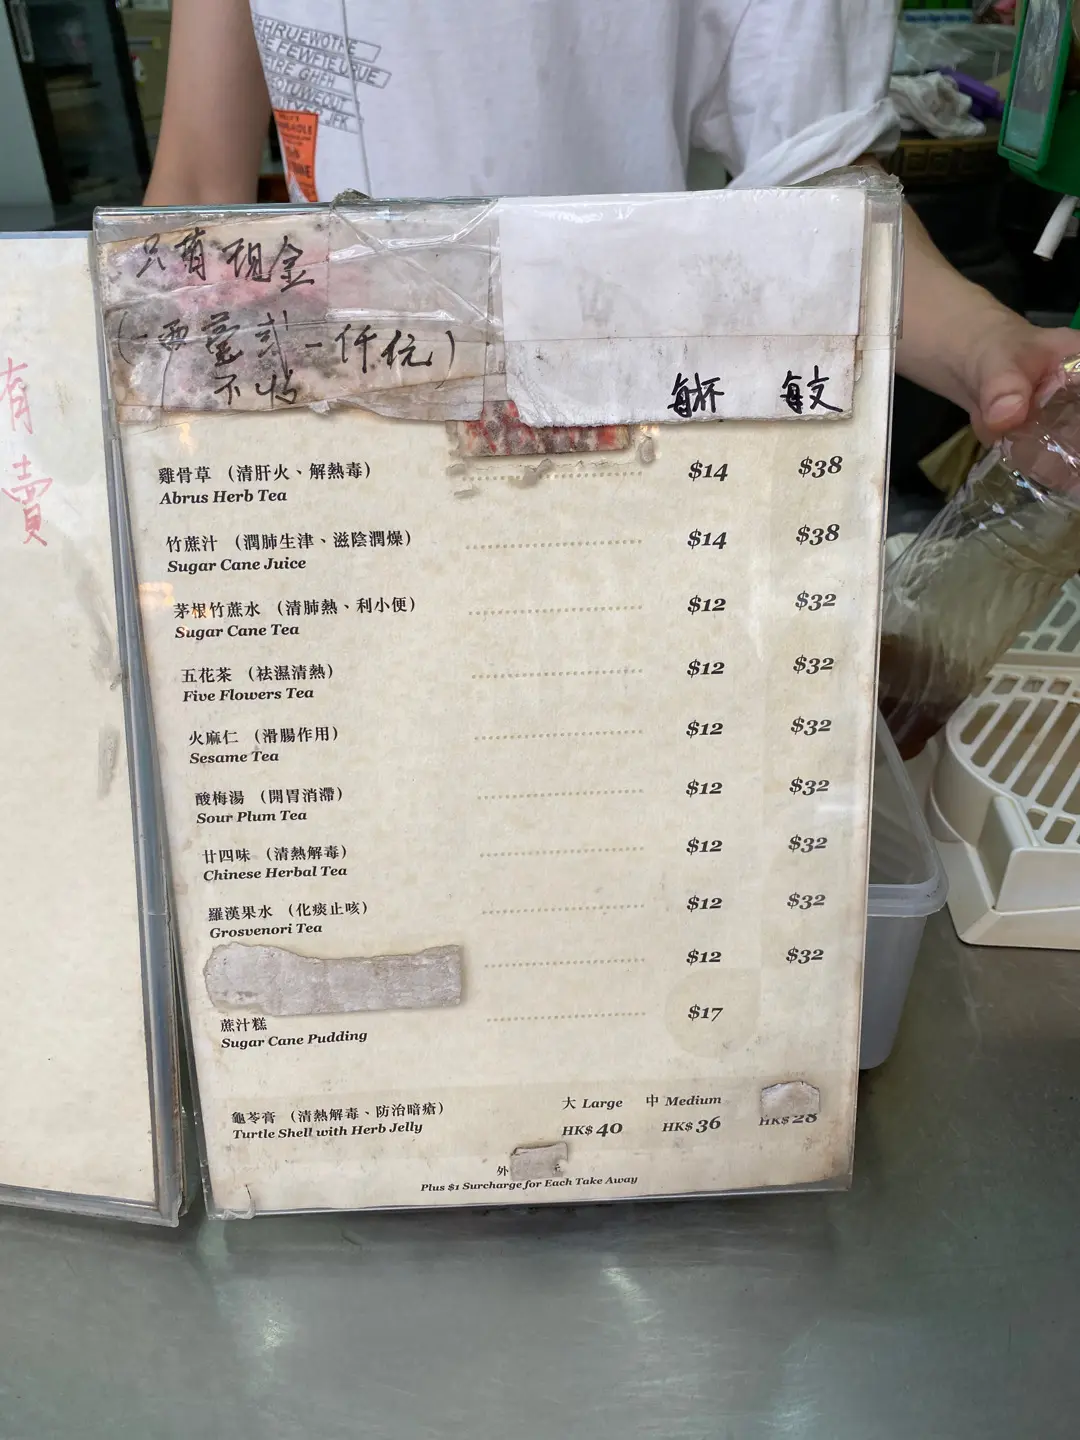 有
賣
只有現金
(一両毫或一仟元)
不收
每杯 每支
雞骨草 (清肝火、解熱毒) $14 $38
Abrus Herb Tea
竹蔗汁 (潤肺生津、滋陰潤燥) $14 $38
Sugar Cane Juice
茅根竹蔗水 (清肺熱、利小便) $12 $32
Sugar Cane Tea
五花茶 (祛濕清熱) $12 $32
Five Flowers Tea
火麻仁 (滑腸作用) $12 $32
Sesame Tea
酸梅湯 (開胃消滯) $12 $32
Sour Plum Tea
廿四味 (清熱解毒) $12 $32
Chinese Herbal Tea
羅漢果水 (化痰止咳) $12 $32
Grosvenori Tea
$12 $32
蔗汁糕 $17
Sugar Cane Pudding
大 Large 中 Medium
龜苓膏 (清熱解毒、防治暗瘡) HK$ 40 HK$ 36 HK$ 28
Turtle Shell with Herb Jelly
外
Plus $1 Surcharge for Each Take Away